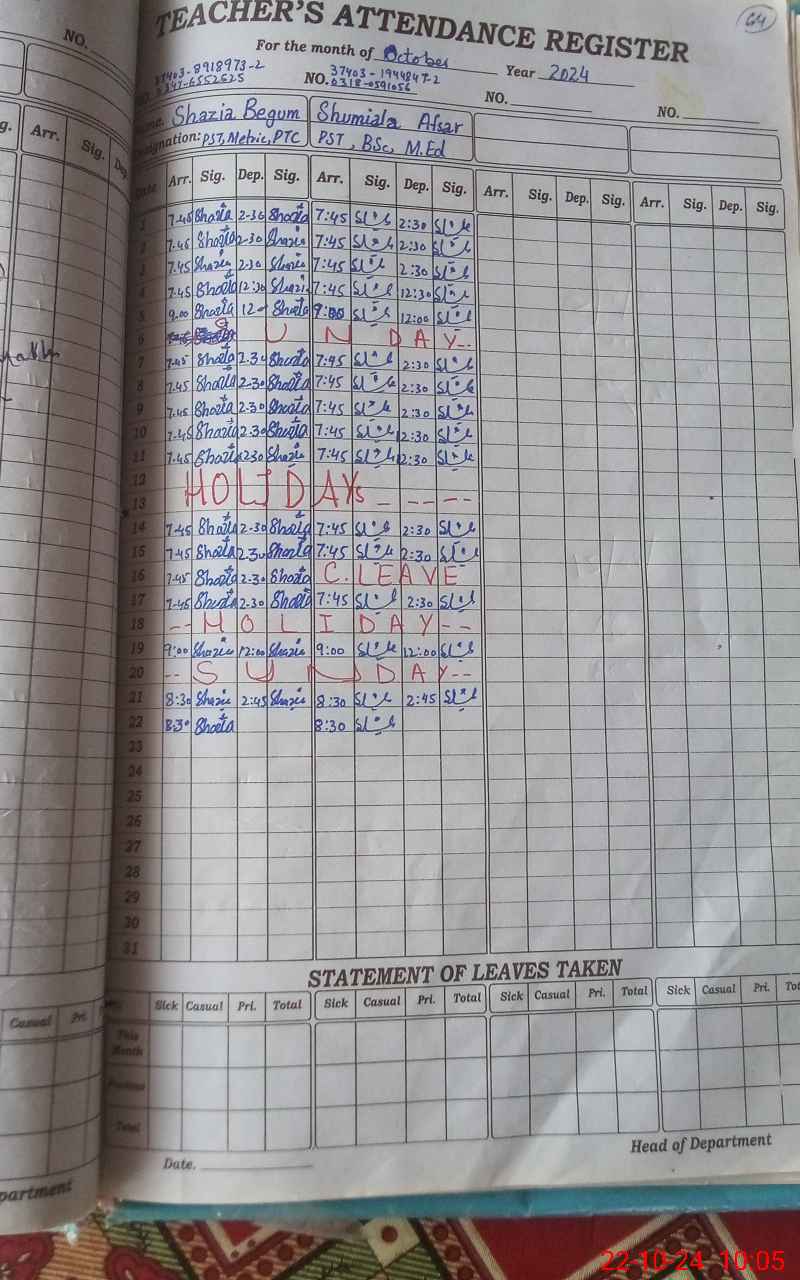 TEACHER'S ATTENDANCE REGISTER
64
For the month of October Year 2024
NO.
37403-8918973-2
0347-6552525
NO. 37403-1944847-2
0318-0591056
NO.
NO.
Name: Shazia Begum Shumiala Afsar
Designation: PST, Metric, PTC PST, BSc, M.Ed
Date Arr. Sig. Dep. Sig. Arr. Sig. Dep. Sig. Arr. Sig. Dep. Sig. Arr. Sig. Dep. Sig.
1 7-45 Shazia 2-30 Shazia 7:45 2:30
2 7-45 Shazia 2-30 Shazia 7:45 2:30
3 7.45 Shazia 2-30 Shazia 7:45 2:30
4 7-45 Shazia 12-30 Shazia 7:45 12:30
5 9.00 Shazia 12- Shazia 9:00 12:00
6 S U N D A Y--
7 7-45 Shazia 2-30 Shazia 7:45 2:30
8 7.45 Shazia 2-30 Shazia 7:45 2:30
9 7.45 Shazia 2-30 Shazia 7:45 2:30
10 7-45 Shazia 2-30 Shazia 7:45 2:30
11 7-45 Shazia 1230 Shazia 7:45 12:30
12
13 HOLIDAYs - - - - -
14 7-45 Shazia 2-30 Shazia 7:45 2:30
15 7-45 Shazia 2-30 Shazia 7:45 2:30
16 7-45 Shazia 2-30 Shazia C.LEAVE
17 7-45 Shazia 2-30 Shazia 7:45 2:30
18 -- H O L I D A Y --
19 9:00 Shazia 12:00 Shazia 9:00 12:00
20 -- S U N D A Y--
21 8:30 Shazia 2:45 Shazia 8:30 2:45
22 8-30 Shazia 8:30
23
24
25
26
27
28
29
30
31
STATEMENT OF LEAVES TAKEN
Sick Casual Pri. Total Sick Casual Pri. Total Sick Casual Pri. Total Sick Casual Pri.
This Month
Previous
Total
Head of Department
Date.
NO.
Arr. Sig. Dep.
Casual Pri
22-10-24 10:05